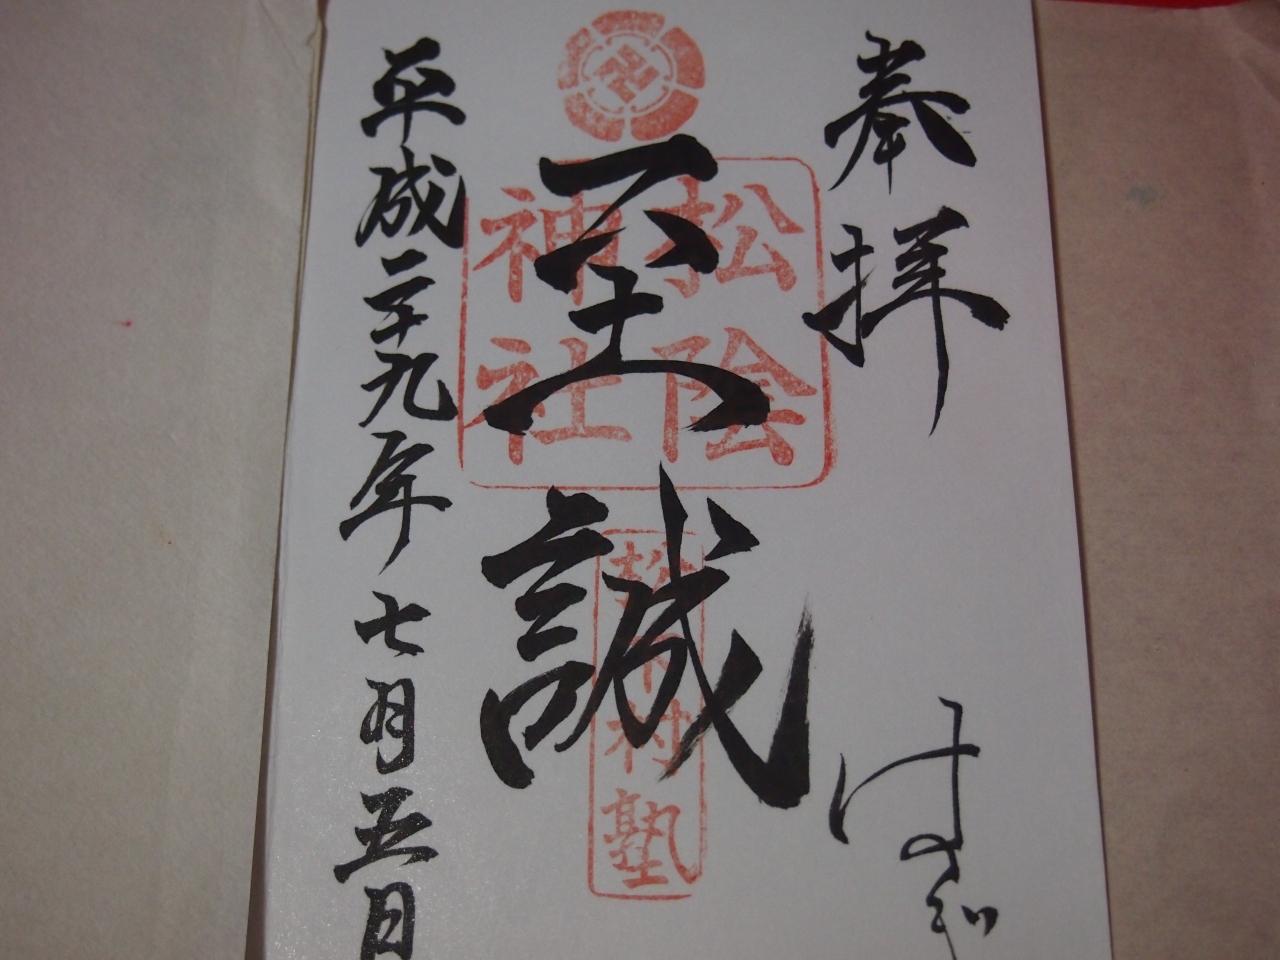 奉拝
松陰
神社
至誠
松下村塾
平成二十九年七月五日